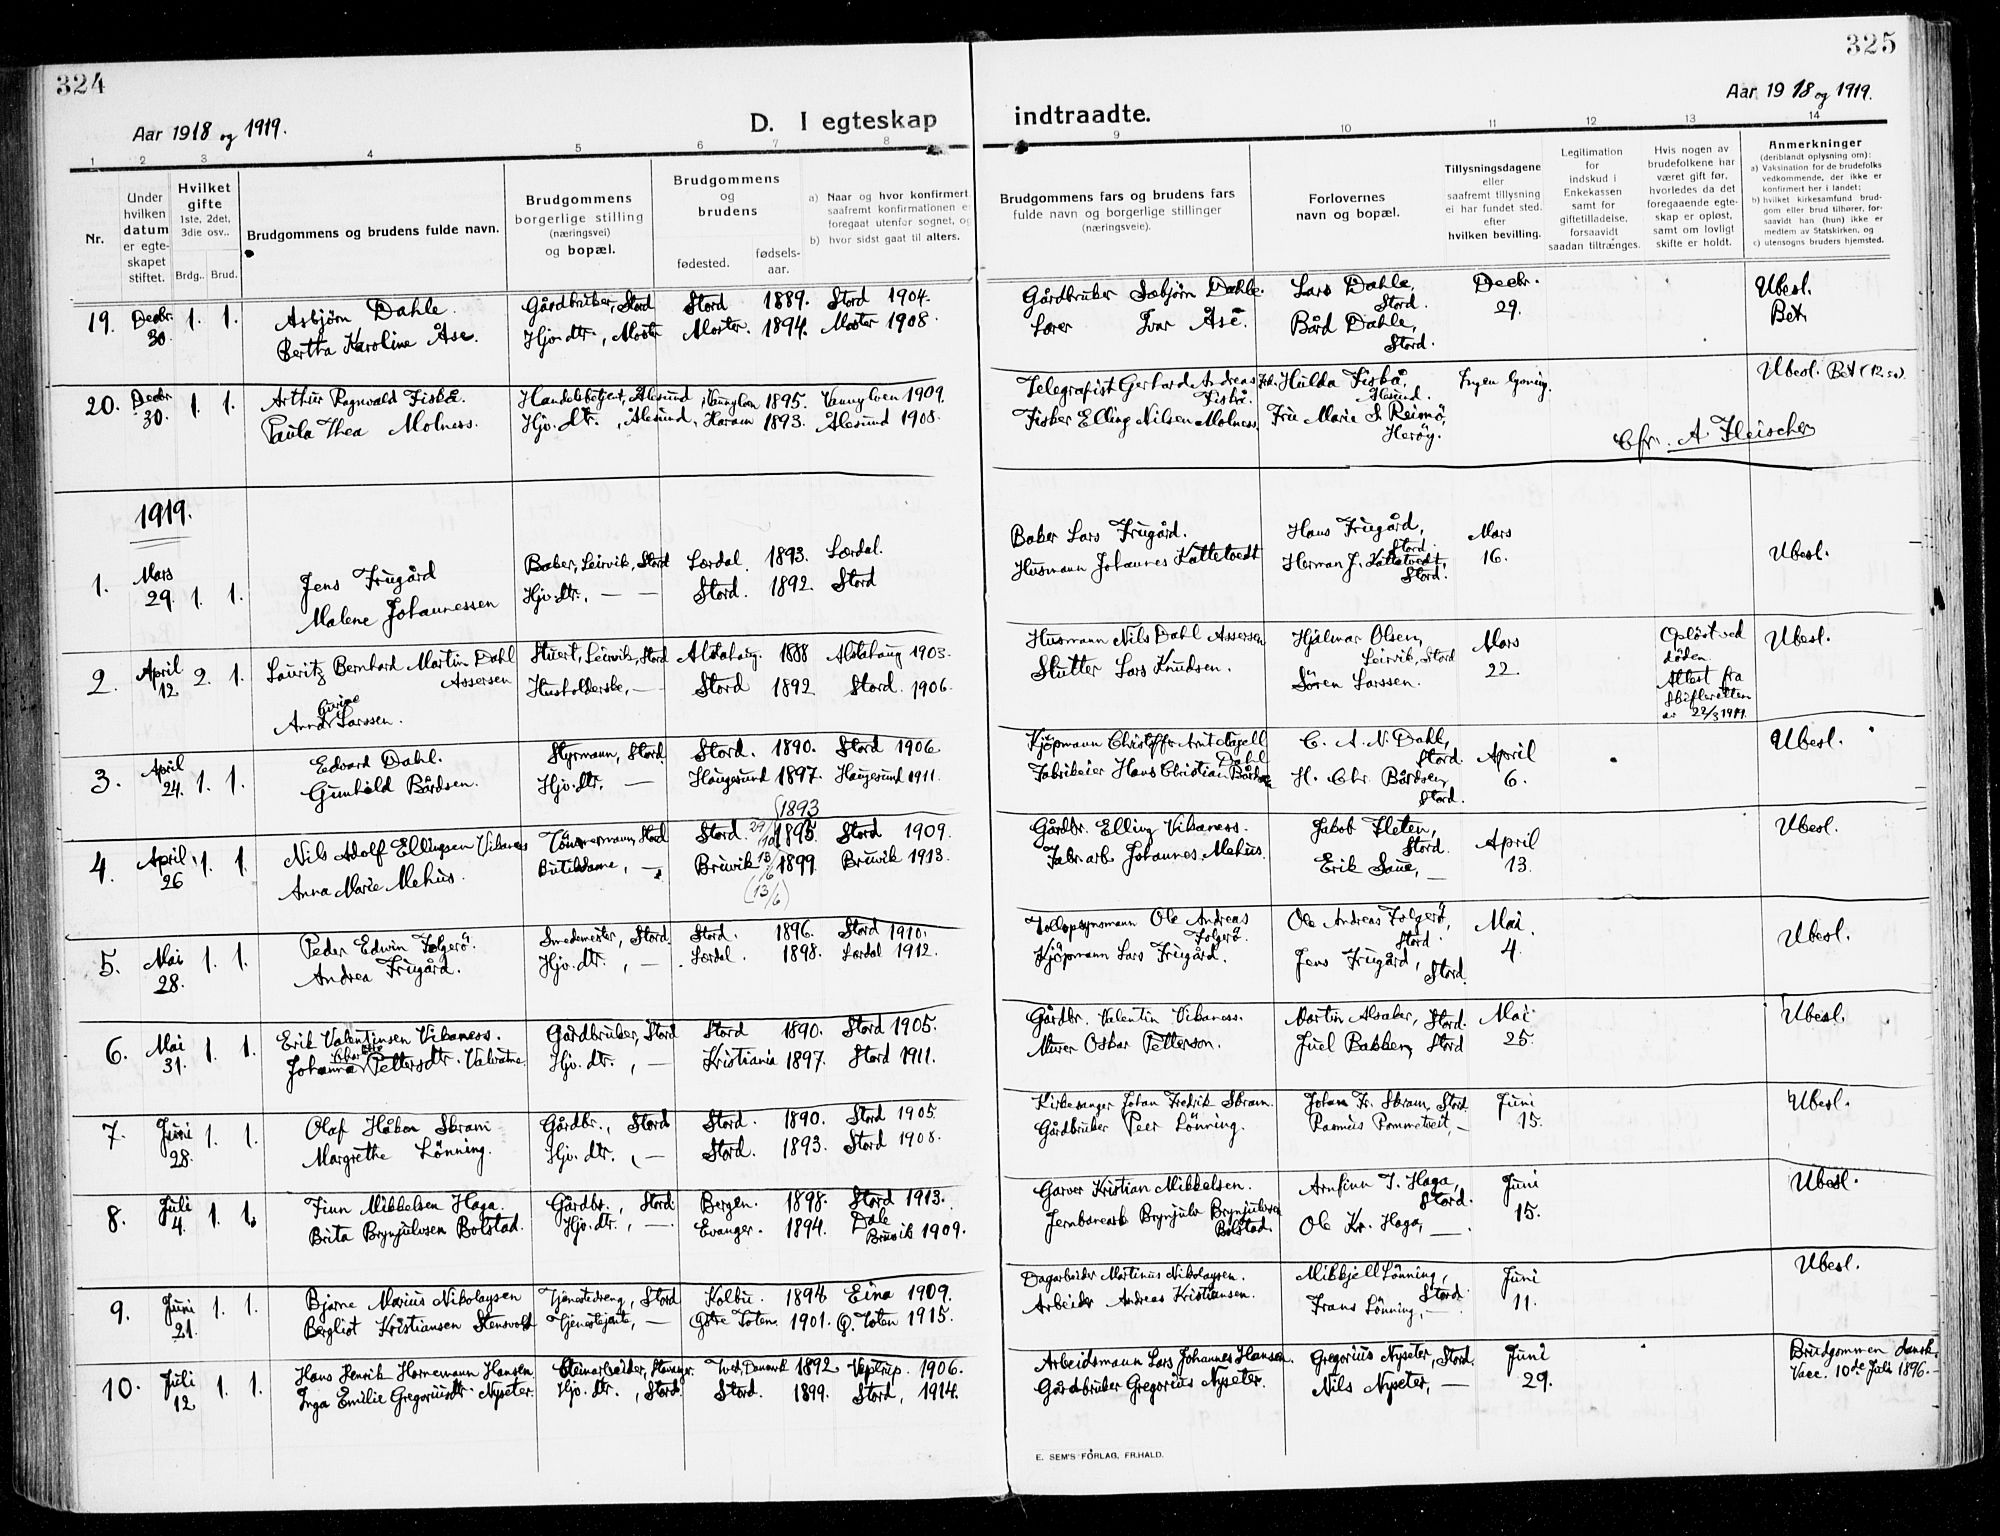 324
325
Aar 1918 og 1919.
D. I egteskap
indtraadte.
Aar 1918 og 1919.
1 2 3 4 5 6 7 8 9 10 11 12 13 14
Nr.
Under hvilken datum er egteskapet stiftet.
Hvilket gifte
1ste, 2det, 3die osv..
Brdg.. Brud.
Brudgommens og brudens fulde navn.
Brudgommens borgerlige stilling (næringsvei) og bopæl.
Brudgommens og brudens
fødested.
fødselsaar.
a) Naar og hvor konfirmert saafremt konfirmationen er foregaat utenfor sognet, og
b) hvor sidst gaat til alters.
Brudgommens fars og brudens fars
fulde navn og borgerlige stillinger
(næringsveie).
Forlovernes navn og bopæl.
Tillysningsdagene eller saafremt tillysning ei har fundet sted. efter hvilken bevilling.
Legitimation for indskud i Enkekassen samt for giftetilladelse, forsaavidt saadan tiltrænges.
Hvis nogen av brudefolkene har været gift før, hvorledes da det foregaaende egteskap er opløst, samt om lovligt skifte er holdt.
Anmerkninger
(deriblandt oplysning om):
a) Vaksination for de brudefolks vedkommende, der ikke er konfirmert her i landet;
b) hvilket kirkesamfund brudgom eller brud tilhører, forsaavidt han (hun) ikke er medlem av Statskirken, og
c) utensogns bruders hjemsted.
19. Decbr. 30. 1. 1. Asbjørn Dahle. Gårdbruker, Stord Stord 1889. Stord 1904. Gårdbruker Sæbjörn Dahle. Lars Dahle, Stord. Decbr. 29. Ubesl.
Bertha Karoline Åse. Hjv. dtr., Moster Moster. 1894. Moster 1908. Lærer Ivar Åse. Bård Dahle, Stord. Bet.
20. Decbr. 30. 1. 1. Arthur Ragnvald Fiskå. Handelsbetjent, Ålesund, Vannylven 1895. Vannylven 1909. Telegrafist Gerhard Andreas Fiskå. Frk. Hulda Fiskå, Ålesund. Ingen lysning. Ubesl. Bet (12.50)
Paula Thea Molness. Hjv. dtr., Ålesund, Haram 1893. Ålesund 1908. Fisker Elling Nilsen Molness. Fru Marie S. Reismö, Heröy.
Chr. A. Fleischer
1919.
1. Mars 29. 1. 1. Jens Frugård Baker, Leirvik, Stord Lærdal. 1893. Lærdal. Baker Lars Frugård. Hans Frugård, Stord. Mars 16. Ubesl.
Malene Johannessen Hjv. dtr., — — Stord. 1892. Stord Husmann Johannes Kattetvedt Herman J. Kattetvedt, Stord.
2. April 12. 2. 1. Lauritz Bernhard Martin Dahl Assersen Stuert, Leirvik, Stord Alstahaug. 1888 Alstahaug 1903. Husmann Nils Dahl Assersen Hjalmar Olsen, Leirvik, Stord Mars 22. Opløst ved døden. Attest fra Skifteretten av 22/3 1919. Ubesl.
Anna Gurine Larssen. Husholderske, — Stord 1892 Stord. 1906. Slutter Lars Knudsen. Sören Larssen.
3. April 24. 1. 1. Edvard Dahl. Styrmann, Stord. Stord. 1890. Stord 1906. Kjøpmann Christoffer Arnt Dahl C. A. N. Dahl, Stord. April 6. Ubesl.
Gunhild Bårdsen. Hjv. dtr. — Haugesund 1897. Haugesund 1911. Fabrikeier Hans Christian Bårdsen H. Chr. Bårdsen, Stord.
4. April 26 1. 1. Nils Adolf Ellingsen Vikanes Tömmermann, Stord Stord. 29/10 (1893 1895. Stord 1909. Gårdbr. Elling Vikaness. Jakob Fleten, Stord. April 13. Ubesl.
Anna Marie Mehus. Butikdame, — Bruvik 13/6 1899. Bruvik 1913. (13/6) Fabr. arb Johannes Mehus. Erik Saue, —
5. Mai 28. 1. 1. Peder Edwin Folgerö. Smedmester, Stord. Stord. 1896. Stord 1910. Tollopsynsmann Ole Andreas Folgerö. Ole Andreas Folgerö, Stord. Mai 4. Ubesl.
Andrea Frugård. Hjv. dtr., — Lærdal. 1898. Lærdal 1912. Kjöpmann Lars Frugård. Jens Frugård, Stord.
6. Mai 31. 1. 1. Erik Valentinsen Vikaness. Gårdbruker, Stord Stord 1890. Stord 1905. Gårdbr. Valentin Vikaness. Martin Alsaker, Stord. Mai 25. Ubesl.
Johanna Pettersdtr. Valvatne. Hjv. dtr., — Kristiania 1897. Stord 1911. Murer Oskar Petterson. Juel Bakken, Stord
7. Juni 28. 1. 1. Olaf Håkon Skram Gårdbr., Stord Stord. 1890. Stord 1905. Kirkesanger Johan Fredrik Skram. Johan Fr. Skram, Stord. Juni 15. Ubesl.
Margrethe Lönning. Hjv. dtr., — Stord. 1893. Stord 1908. Gårdbruker Peer Lönning. Rasmus Rommetveit, —
8. Juli 4. 1. 1. Finn Mikkelsen Haga. Gårdbr., Stord. Bergen. 1898. Stord 1913. Garver Kristian Mikkelsen. Arnfinn T. Haga, Stord. Juni 15. Ubesl.
Brita Brynjulvsen Bolstad. Hjv. dtr., — Evanger. 1894. Dale Bruvik 1909. Jernbanearb. Brynjulv Brynjulvsen Bolstad. Ole Kr. Haga, —
9. Juni 21. 1. 1. Bjarne Marius Nikolaysen Tjenestedreng, Stord Kolbu. 1894 Eina 1909. Dagarbeider Martinus Nikolaysen. Mikkjell Lönning, Stord. Juni 11. Ubesl.
Bergliot Kristiansen Stensvold Tjenestejente, — Østre Toten. 1901. Ø. Toten 1915. Arbeider Andreas Kristiansen. Frans Lönning, —
10. Juli 12 1. 1. Hans Henrik Hornemann Hansen Stenarbeider, Stavanger. Tved, Danmark 1892. Vejstrup. 1906. Arbeidsmann Lars Johannes Hansen. Gregorius Nyseter, Stord. Juni 29. Brudgommen dansk. Vacc. 10de Juli 1896.
Inga Emilie Gregoriusdtr. Nyseter. Hjv. dtr., Stord. Stord. 1899. Stord, 1914. Gårdbruker Gregorius Nyseter. Nils Nyseter, —
E. SEM'S FORLAG, FR.HALD.